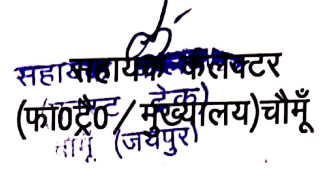 सहायक कलक्टर
(फा0ट्रै0 / मुख्यालय)चौमूँ
(जयपुर)